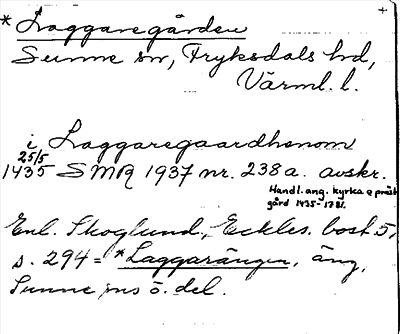 +
* Laggaregården
Sunne sn, Fryksdals hd,
Värml. l.
i Laggaregaardhenom
25/5
1435 SMR 1937 nr. 238 a. avskr.
Handl. ang. kyrka o präst
gård 1435-1781.
Enl. Skoglund, Eckles. bost 5,
s. 294 = *Laggarängen, äng,
Sunne sns ö. del.